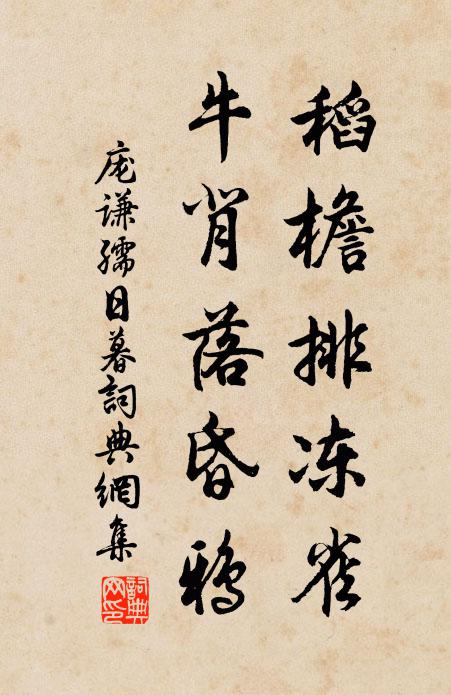 稻檐排冻雀
牛背落昏鸦
庞谦孺日暮詞典網集
詞典